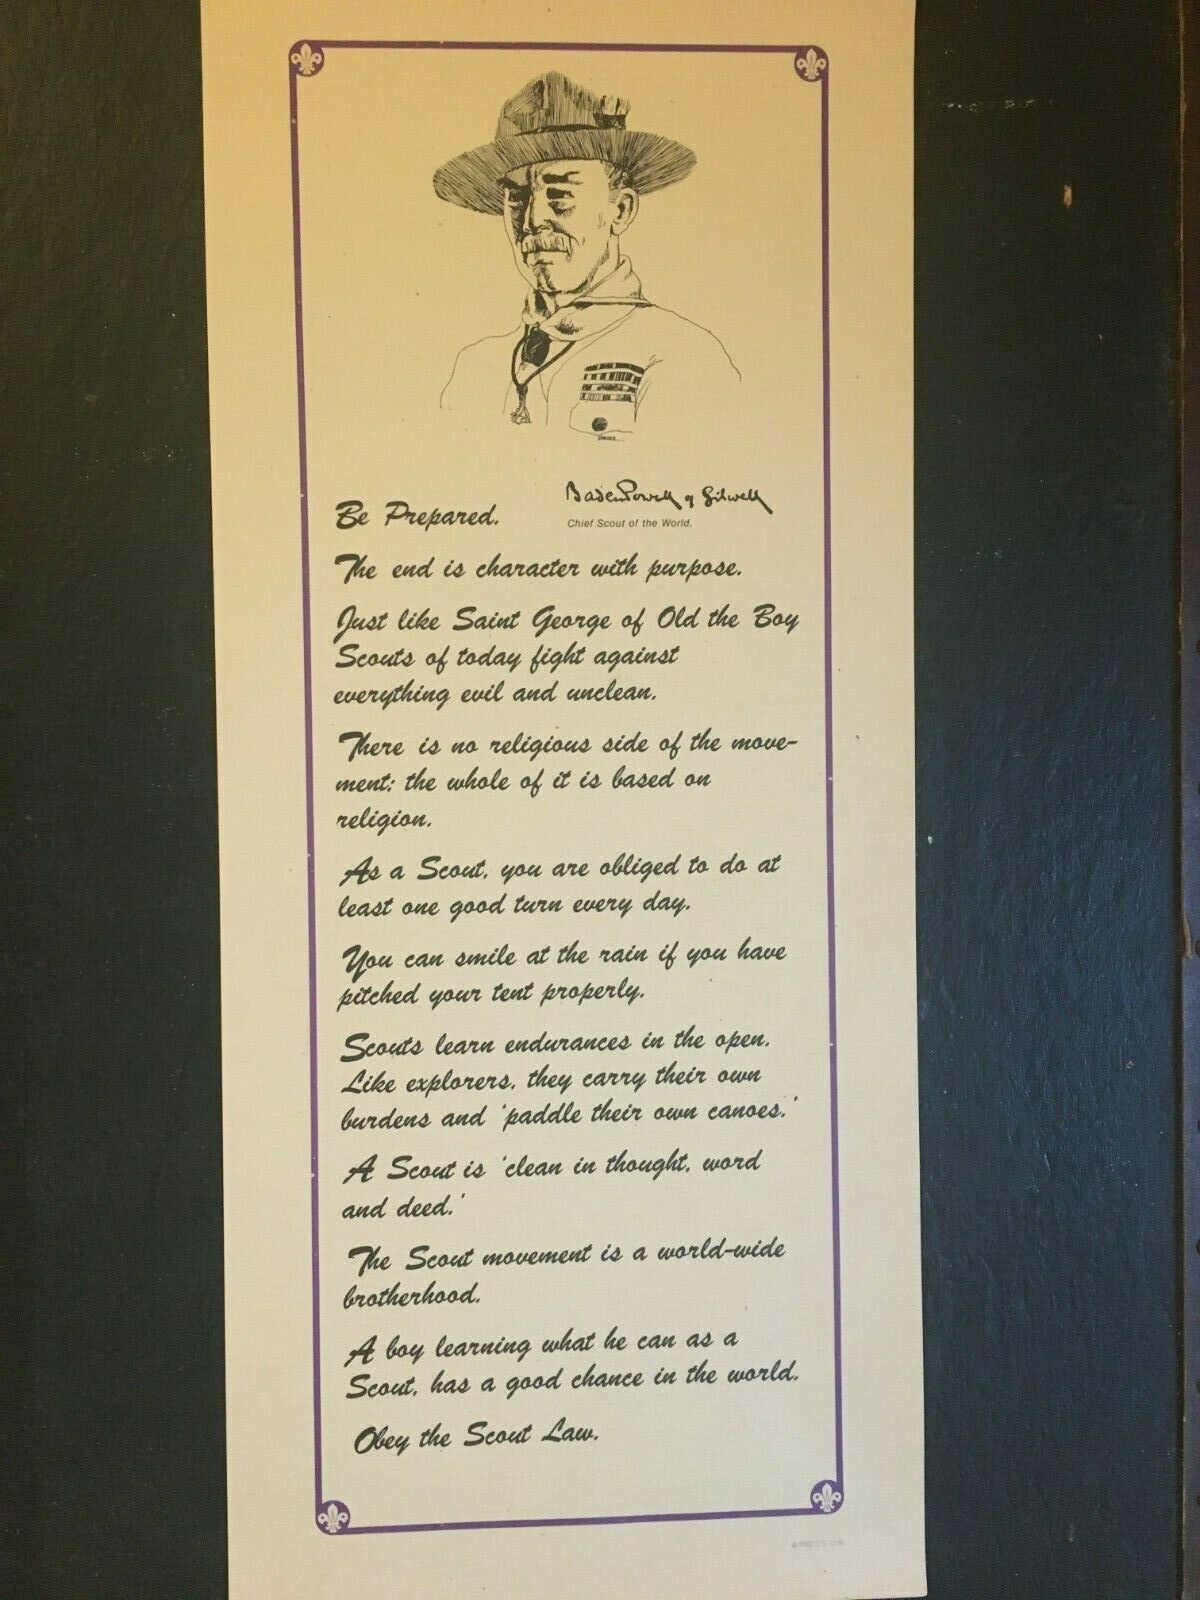 BadenPowell of Gilwell
Chief Scout of the World.
Be Prepared.
The end is character with purpose.
Just like Saint George of Old the Boy
Scouts of today fight against
everything evil and unclean.
There is no religious side of the move-
ment; the whole of it is based on
religion.
As a Scout, you are obliged to do at
least one good turn every day.
You can smile at the rain if you have
pitched your tent properly.
Scouts learn endurances in the open.
Like explorers, they carry their own
burdens and 'paddle their own canoes.'
A Scout is 'clean in thought, word
and deed.'
The Scout movement is a world-wide
brotherhood.
A boy learning what he can as a
Scout, has a good chance in the world.
Obey the Scout Law.